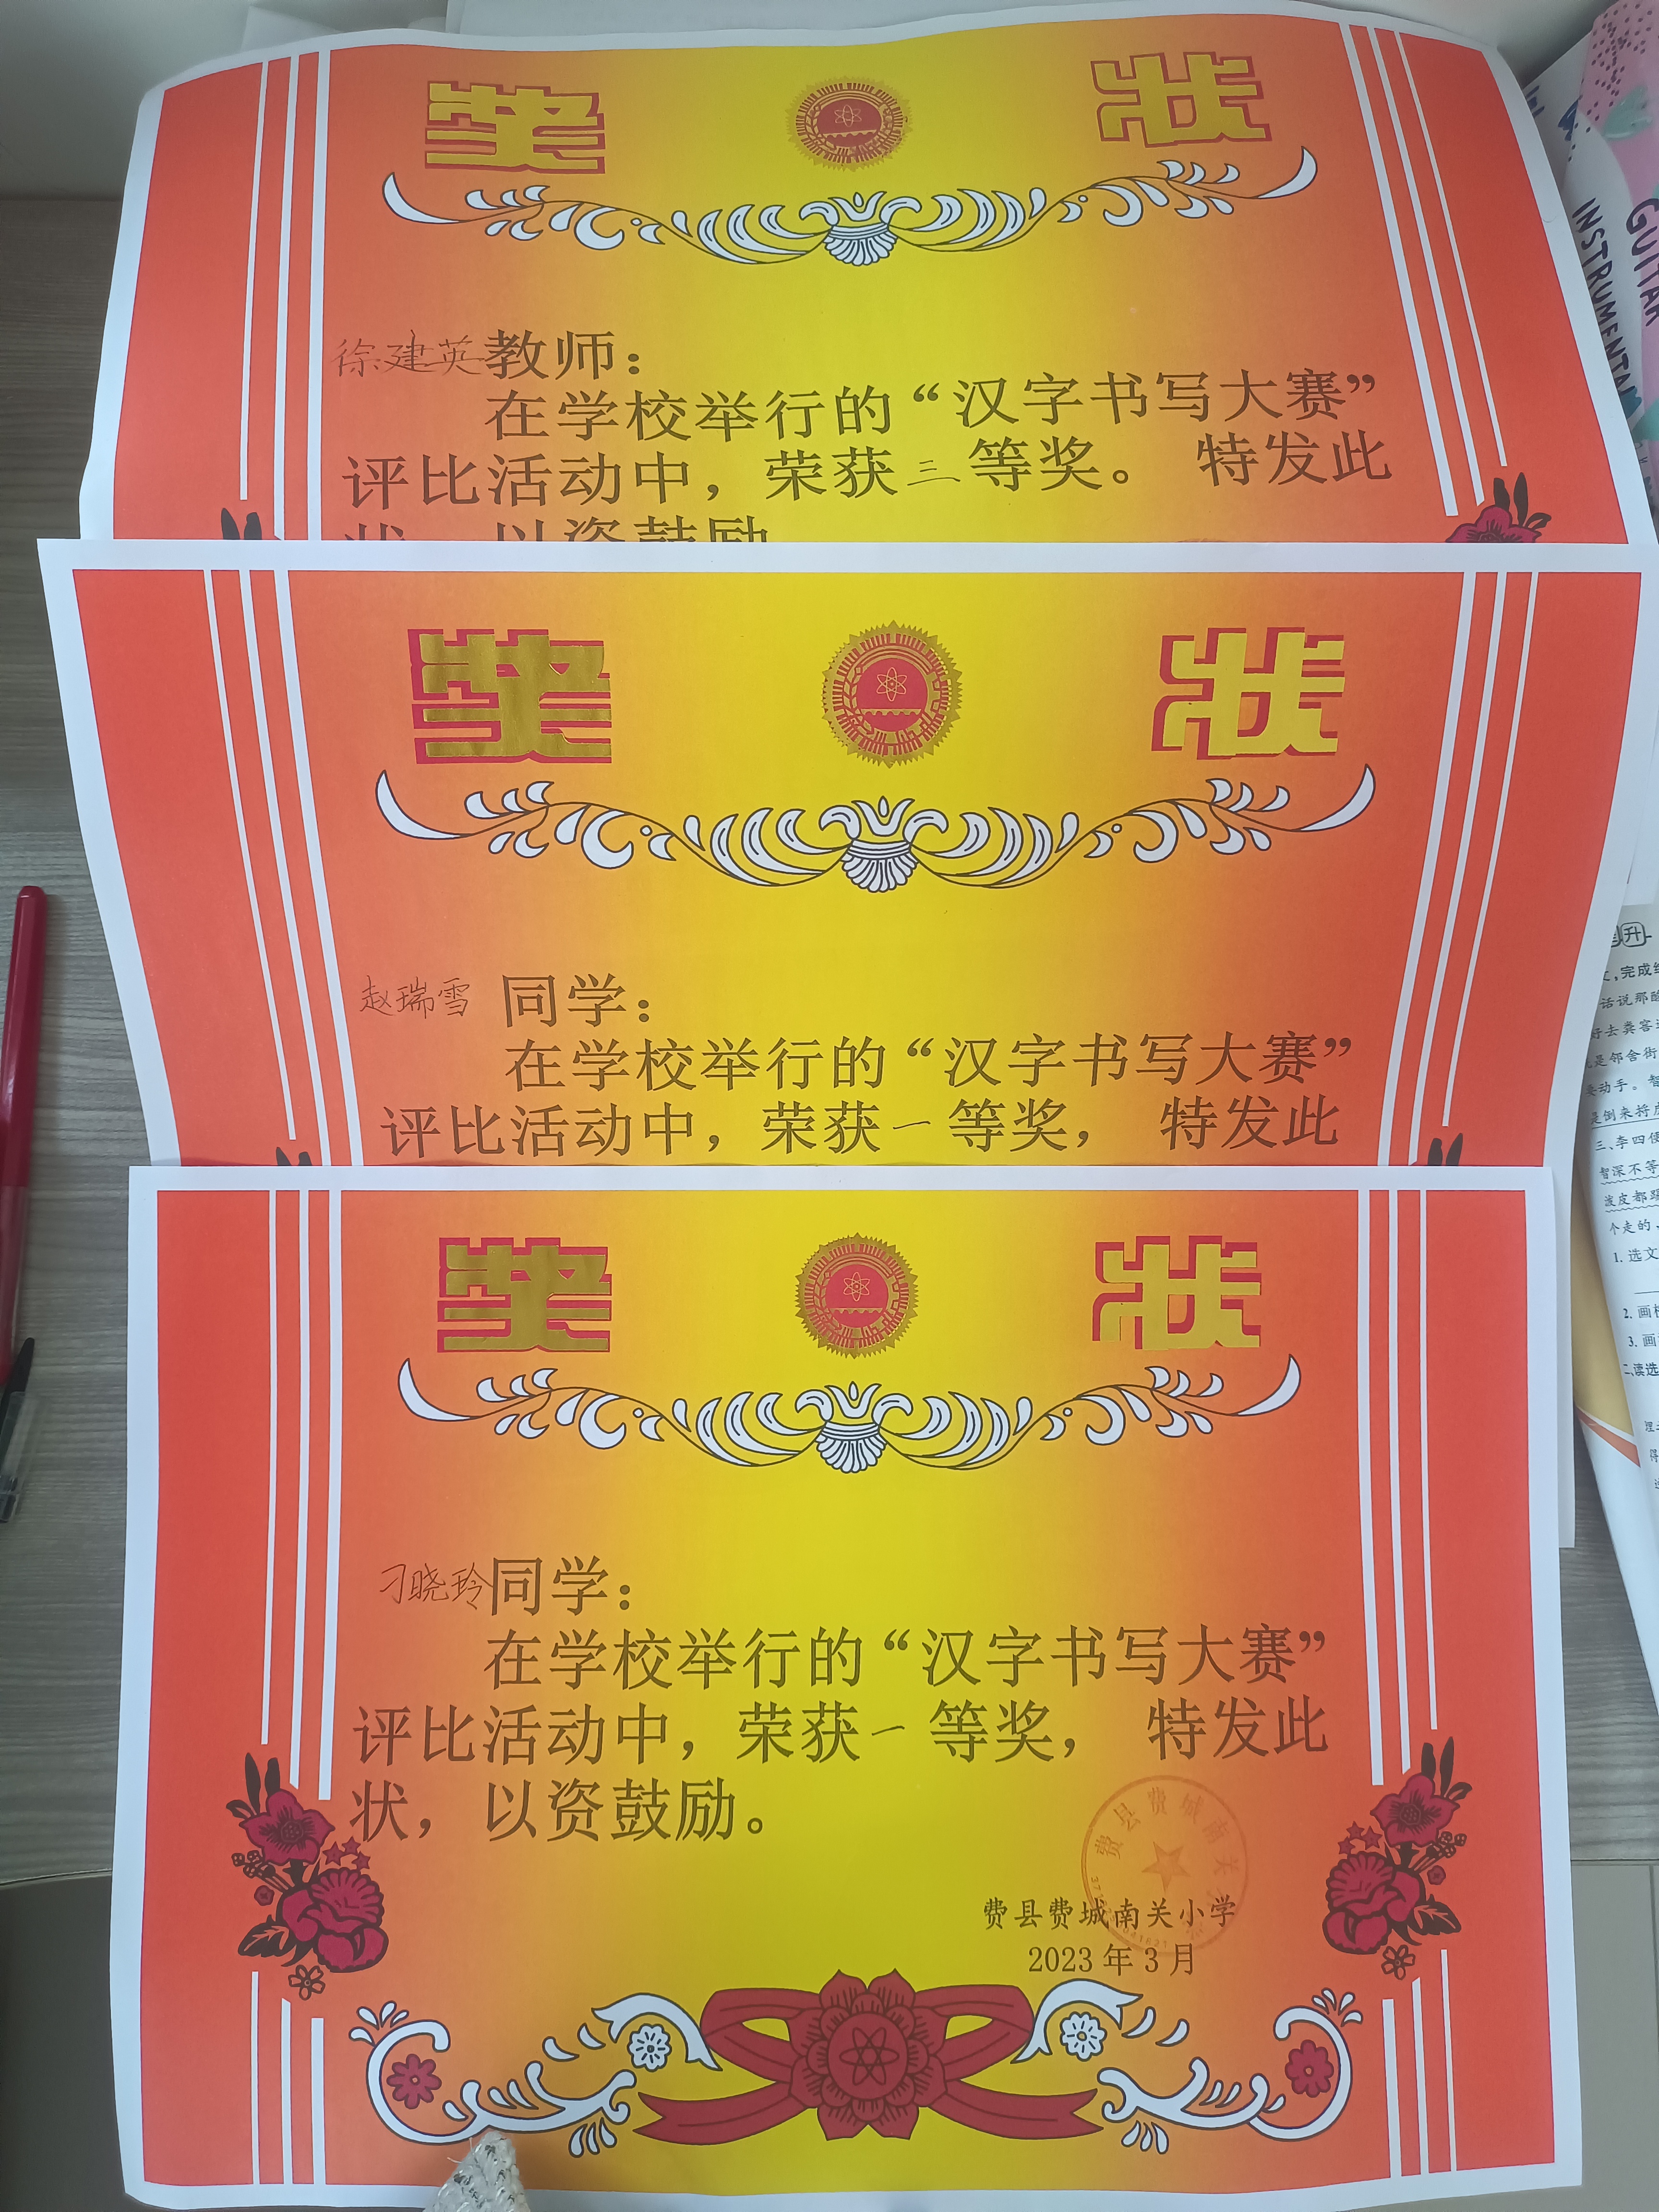 奖 状
徐建英教师：
在学校举行的“汉字书写大赛”
评比活动中，荣获三等奖。 特发此
状，以资鼓励
奖 状
赵瑞雪 同学：
在学校举行的“汉字书写大赛”
评比活动中，荣获一等奖， 特发此
奖 状
刁晓玲同学：
在学校举行的“汉字书写大赛”
评比活动中，荣获一等奖， 特发此
状，以资鼓励。
费县费城南关
费县费城南关小学
2023 年 3 月
GUITAR
INSTRUMENTAL
升
文，完成
话说那
好去粪窖
是邻舍街
要动手。智
是倒来将
三、李四便
智深不等
泼皮都
个走的、
1. 选文
2. 画
3. 画
二、读选